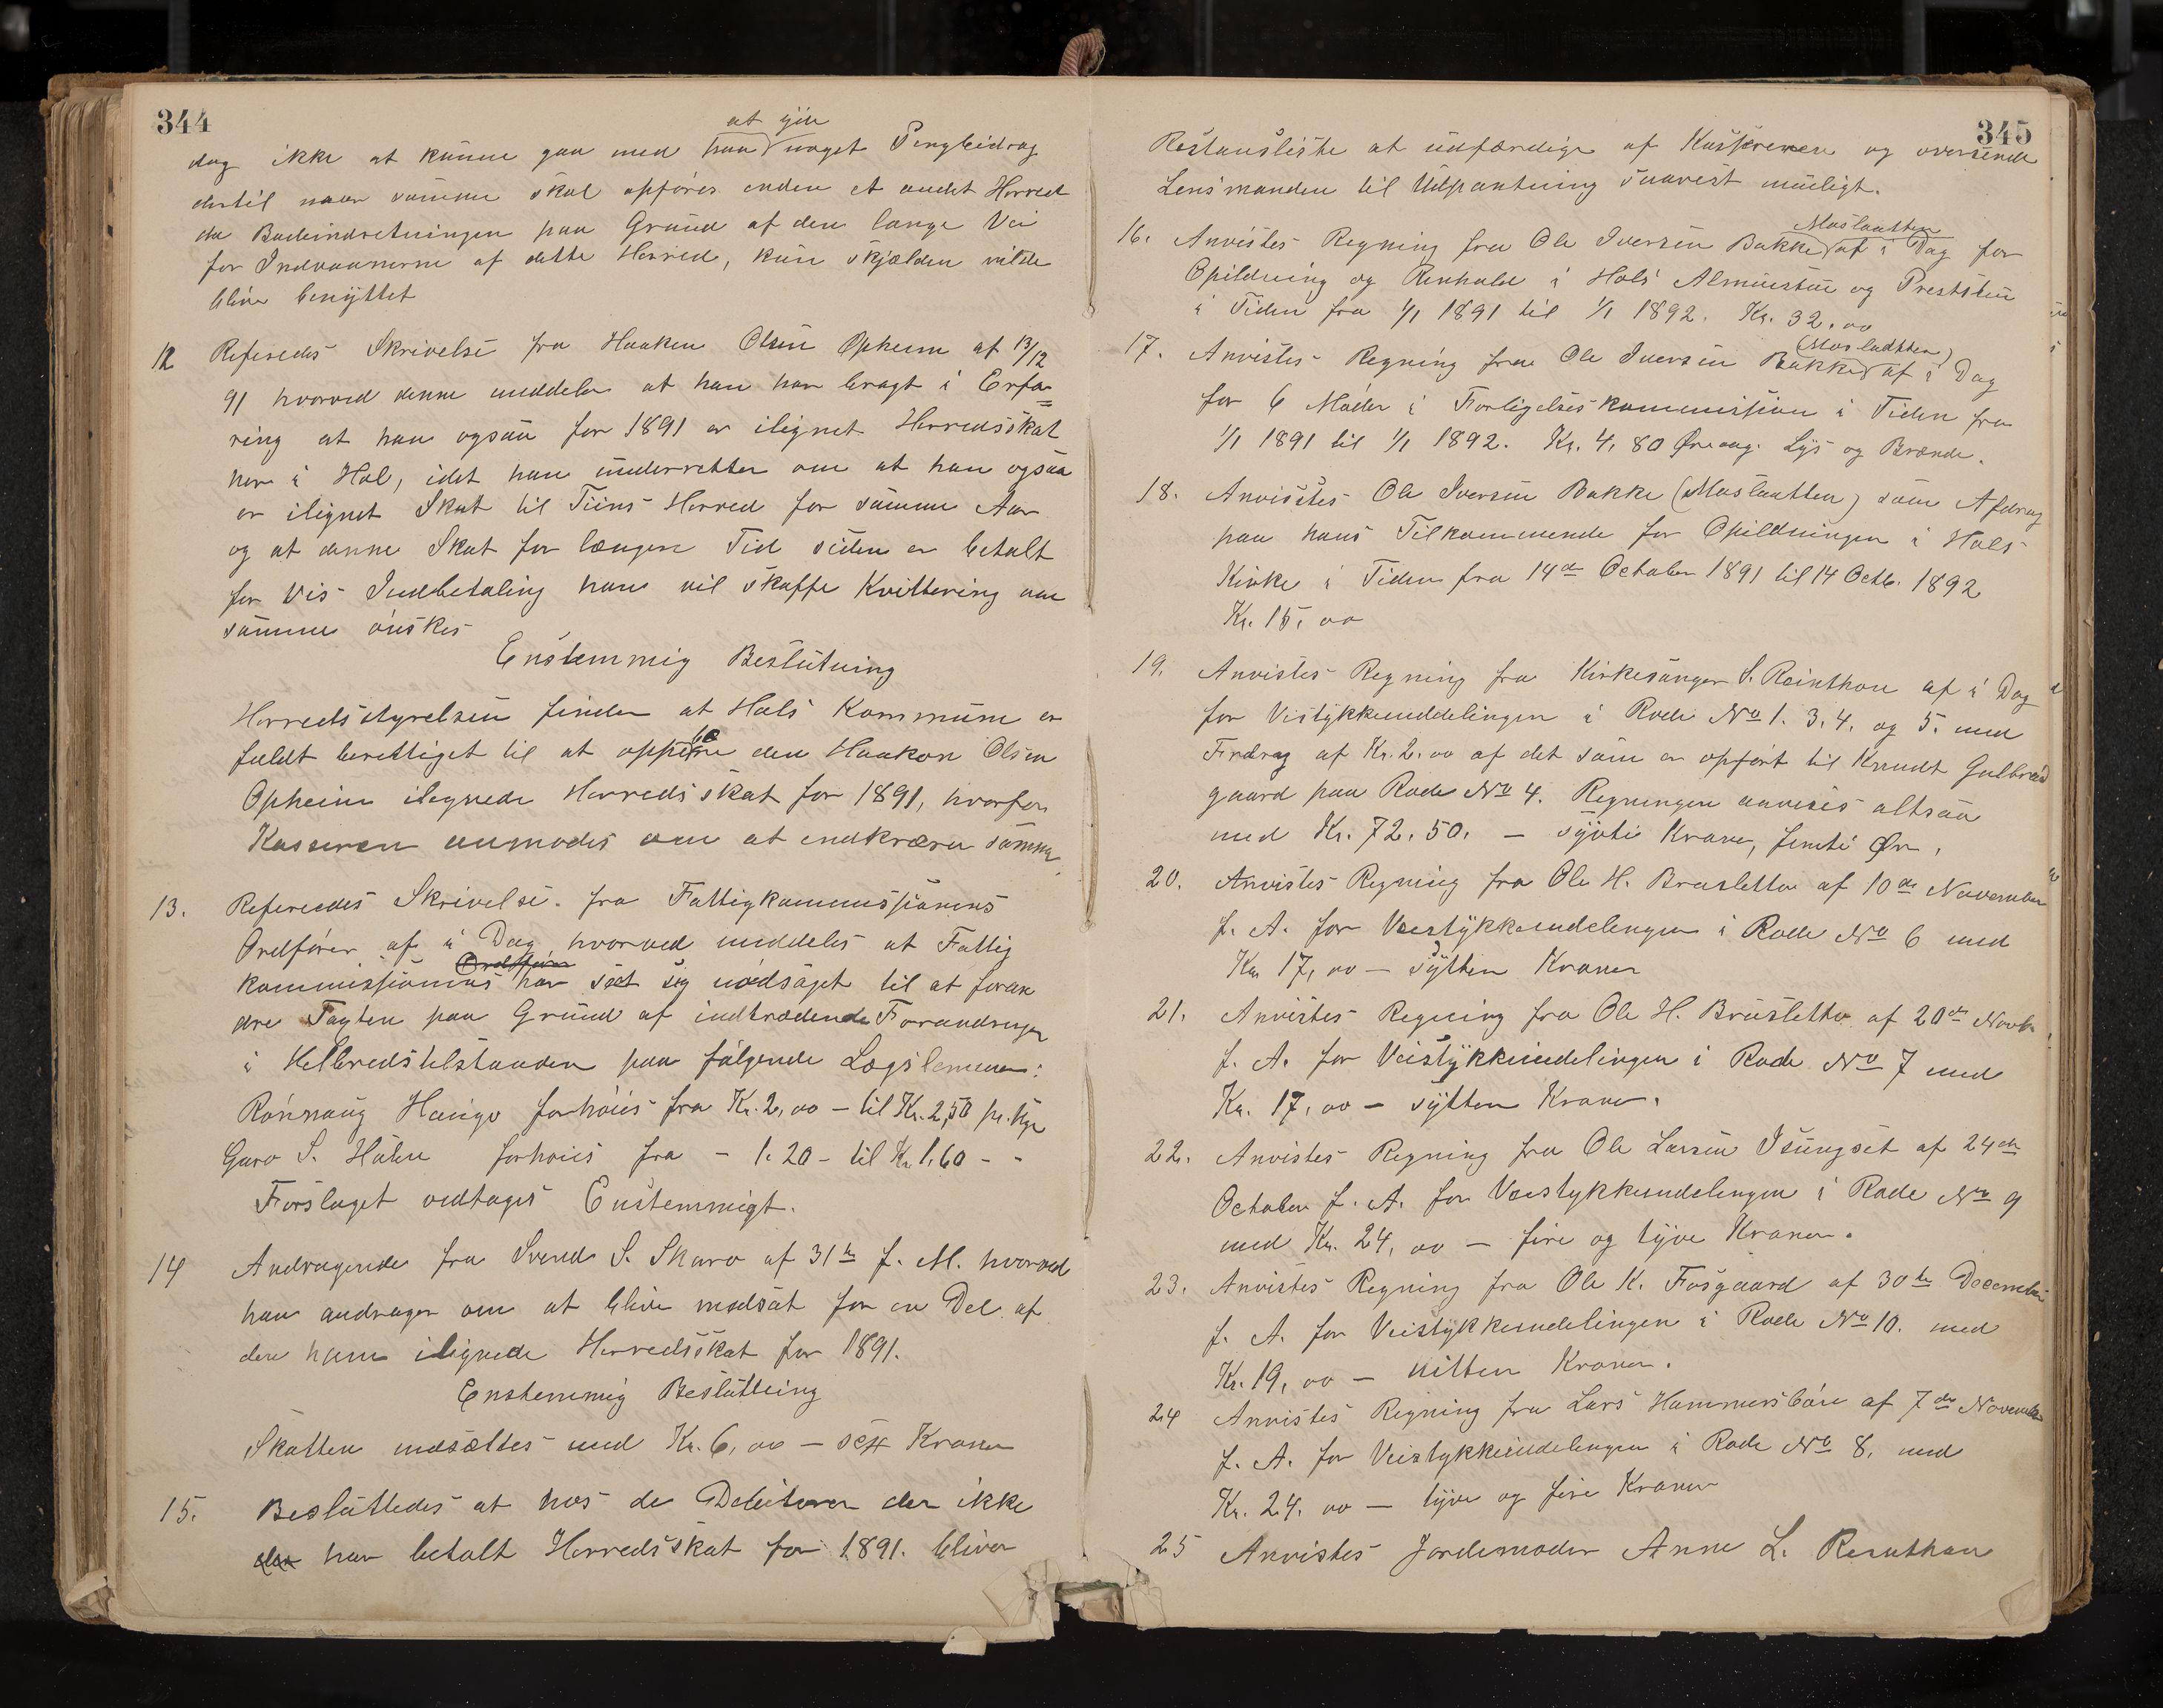 344
at yde
dog ikke at kunne gaa med paa noget Pengbidrag
dertil naar samme skal opføres enden et andet Herred
da Badeindretningen paa Grund af den lange Vei
for Indvaanerne af dette Herred, kun skjælden vilde
blive benyttet
12 Refereredes Skrivelse fra Haaken Olsen Opheim af 13/12
91 hvorved denne meddeler at han har bragt i Erfa=
ring at han ogsaa for 1891 er ilignet Herredsskat
her i Hol, idet han underretter om at han ogsaa
er ilignet Skat til Tiins Herred for samme Aar
og at denne Skat for længere Tid siden er betalt
for vis Indbetaling han vil skaffe Kvittering om
samme ønskes
Enstemmig Beslutning
Herredsstyrelsen finder at Hols Kommune er
fuldt berettiget til at oppebære den Haakon Olsen
Opheim ilignede Herredsskat for 1891, hvorfor
Kasseren anmodes om at indkræve samme.
13. Refereredes Skrivelse fra Fattigkommissionens
Ordfører af i Dag, hvorved meddeles at Fattig
kommissionens Ordfører har seet sig nødsaget til at foran
dre Taxten paa Grund af indtrædende Forandringer
i Helbredstilstanden paa følgende Lægslemmer:
Rønnaug Haugo forhøies fra Kr. 2,00 - til Kr. 2,50 pr. Uge
Guro S. Holen forhøies fra - 1.20 - til Kr 1.60 - -
Forslaget vedtages Enstemmigt.
14 Andragende fra Svend S. Skaro af 31te f. M. hvorved
han andrager om at blive nedsat for en Del af
den ham ilignede Herredsskat for 1891.
Enstemmig Beslutning
Skatten nedsættes med Kr. 6,00 - sex Kroner
15. Besluttedes at hos de Debitorer der ikke
der har betalt Herredsskat for 1891. bliver
345
Restansliste at udfærdige af Kassereren og oversende
Lensmanden til Udpantning snarest muligt.
Moslaatten
16. Anvistes Regning fra Ole Iversen Bakke af i Dag for
Opildning og Renhold i Hols Almuestue og Preststue
i Tiden fra 1/1 1891 til 1/1 1892. Kr. 32.00
(Moslaatten)
17. Anvistes Regning fra Ole Iversen Bakke af i Dag
for 6 Møder i Forligelseskommission i Tiden fra
1/1 1891 til 1/1 1892. Kr. 4,80 Øre og Lys og Brænde.
18. Anvistes Ole Iversen Bakke (Moslaatten) som Afdrag
paa hans Tilkommende for Opildningen i Hols
Kirke i Tiden fra 14de October 1891 til 14 Octb. 1892
Kr. 15,00
19. Anvistes Regning fra Kirkesanger S. Reinthon af i Dag
for Veistykkeinddelingen i Rode No 1. 3. 4. og 5. med
Fradrag af Kr. 2.00 af det som er opført til Knudt Gulbrand
gaard paa Rode No 4. Regningen anvises altsaa
med Kr. 72.50. - sytti Kroner, femti Øre.
20. Anvistes Regning fra Ole H. Brusletto af 10de November
f. A. for Veistykkeindelingen i Rode No 6 med
Kr. 17,00 - sytten Kroner
21. Anvistes Regning fra Ole H. Brusletto af 20de Novb.
f. A. for Veistykkeindelingen i Rode No 7 med
Kr. 17,00 - sytten Kroner.
22. Anvistes Regning fra Ole Larsen Isungset af 24de
October f. A. for Veistykkeindelingen i Rode No 9
med Kr. 24,00 - fire og tyve Kroner.
23. Anvistes Regning fra Ole K. Fosgaard af 30te December
f. A. for Veistykkeindelingen i Rode No 10. med
Kr. 19,00 - nitten Kroner.
24 Anvistes Regning fra Lars Hammersbøen af 7de November
f. A. for Veistykkeindelingen i Rode No 8. med
Kr. 24.00 - tyve og fire Kroner
25 Anvistes Jordemoder Anne L. Reinthon